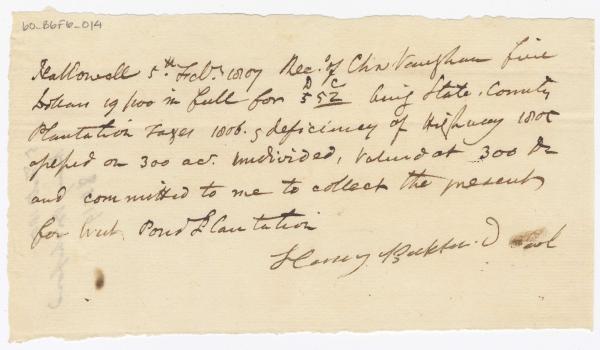 60_B6F6_014
Hallowell 5th Feby 1807 Recd of Chs Vaughan five
Dollars 19/100 in full for
D C
5 52 being State, County
Plantation Taxes 1806. & deficiency of Highway 1805
assessed on 300 acr. undivided, valued at 300 Dr
and committed to me to collect the present
for Pond Plantation